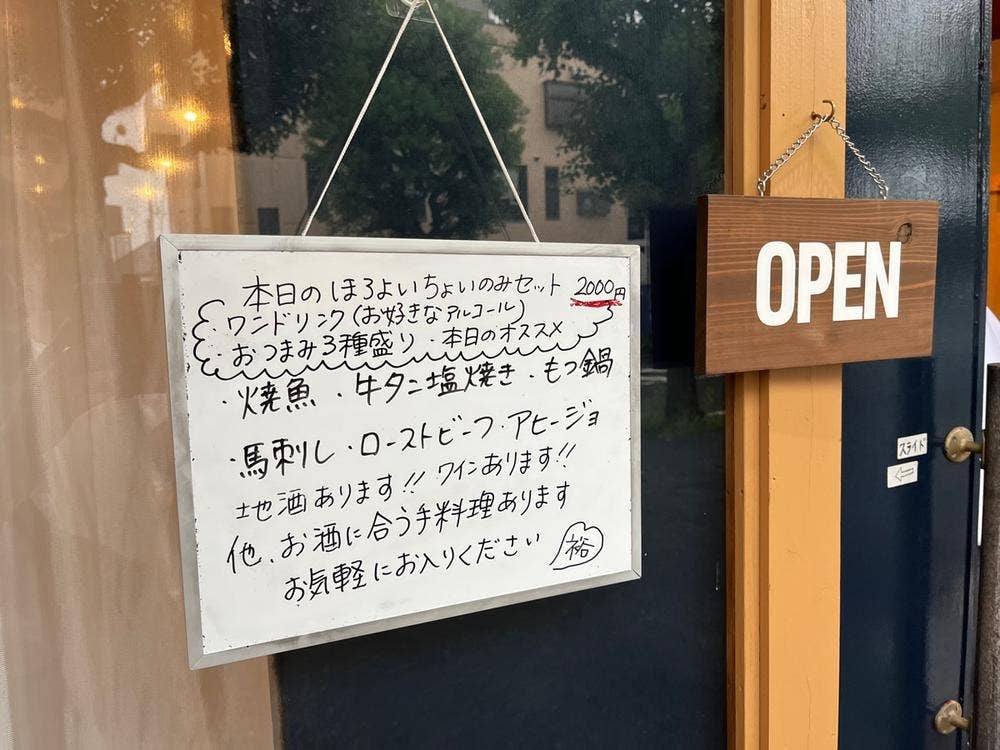 本日のほろよいちょいのみセット 2000円
・ワンドリンク(お好きなアルコール)
・おつまみ3種盛り・本日のオススメ
・焼魚・牛タン塩焼き・もつ鍋
・馬刺し・ローストビーフ・アヒージョ
地酒あります!! ワインあります!!
他、お酒に合う手料理あります
お気軽にお入りください 裕
OPEN
スライド
←